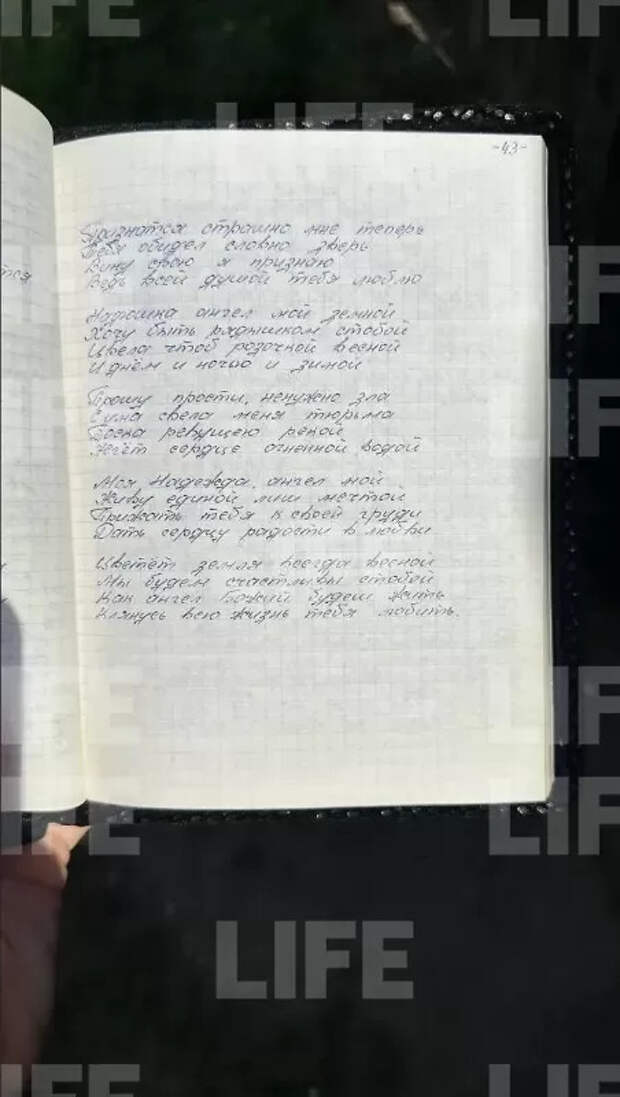 LIFE
-43-
Признатся страшно мне теперь
Тебя обидел словно зверь
Вину свою я признаю
Ведь всей душой тебя люблю
Надюшка ангел мой земной
Хочу быть рядышком стобой
Цвела чтоб розочкой весной
И днём и ночью и зимой
Прошу прости, ненужно зла
С ума свела меня тюрьма
Тоска ревущею рекой
Жгёт сердце огненной водой
Моя Надежда, ангел мой
Живу единой лиш мечтой
Прижать тебя к своей груди
Дать сердцу радости в любви
Цветёт земля всегда весной
Мы будем счастливы стобой
Как ангел Божий будеш жить
Клянусь всю жизнь тебя любить.
тся
LIFE
LIFE
LIFE
LIFE
LIFE
LIFE
LIFE